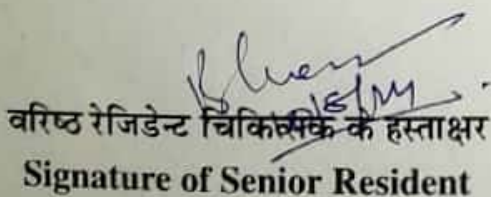 वरिष्ठ रेजिडेन्ट चिकित्सक के हस्ताक्षर
Signature of Senior Resident